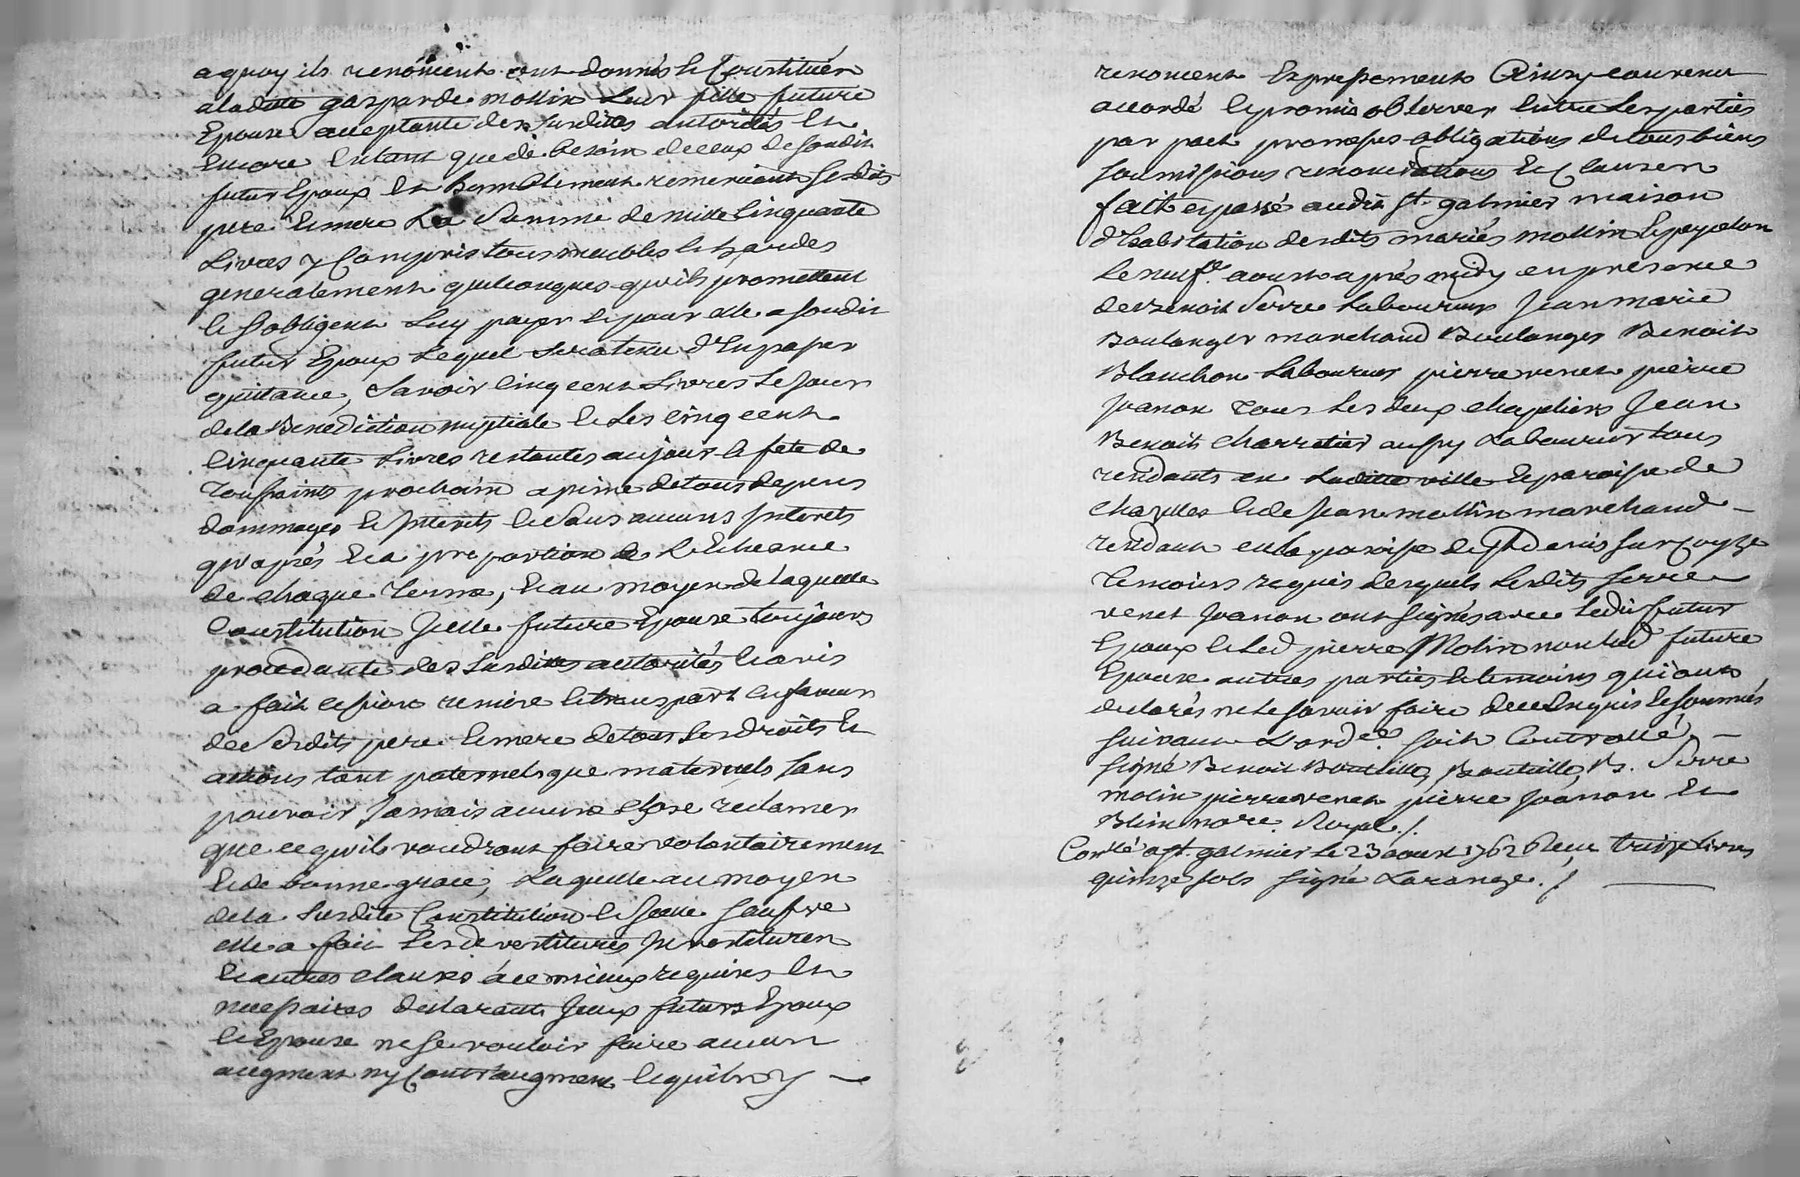 a quoy ils renoncent ont donnés & Constituér
a laditte gasparde mollin Leur fille future
Epouse acceptante des susdittes autorités Et
Encore Entant que de besoin de ceux desondit
futur Epoux Et humblement remerciant sesdits
pere & mere La Somme de mille Cinquante
Livres y Compris tous meubles & hardes
generalement quelconques qu'ils promettent
& s'obligent Luy payer & pour elle a sondit
futur Epoux Lequel sera tenu d'En passer
quittance, Savoir Cinq cent Livres Le Jour
de la Benediction nuptiale & Les Cinq cent
Cinquante Livres restantes au jour & fete de
Toussaints prochain a peine de tous depens
dommages & Interets & Sans aucuns Interets
qu'aprés & a proportion de L'Echeance
de chaque Terme, & au moyen de laquelle
Constitution Jcelle future Epouse toujours
procedante des susdittes autorités & avis
a fait cession remise & transport en faveur
de Sesdits pere & mere de tous ses droits Et
actions tant paternels que maternels sans
pouvoir Jamais aucune chose reclamer
que ce qu'ils voudront faire volontairement
& de bonne grace, Laquelle au moyen
de la Susdite Constitution & Jcelle sauf ve
elle a fait Les devestitures Jnvestituren
& autres clauses à ce mieux requises Et
necessaires declarants Jceux futurs Epoux
& Epouse ne se vouloir faire aucun
augment ny Contraugment & quils y
renoncent Expressement Ainsy convenu
accordé & promis observer Entre Les parties
par pact promesses obligations de tous biens
soumissions renonciations & Clausen
fait et passé audit St. galmier maison
d'habitation desdits mariés mollin & peyrdon
Le neufe. aoust aprés midy en presence
de Benoit Serre Laboureur Jean marie
Boulanger marchand Boulanger Benoit
Blanchon Laboureur pierre venet pierre
Joanon Tous Les deux chapeliers Jean
Benoit charretier aussy Laboureur tous
residants en Laditte ville & paroisse de
& de Jean mollin marchand
residant en la paroisse de St denis sur Coyze
Temoins requis desquels Lesdits serre
venet Joanon ont signés avec Ledit futur
Epoux & Led pierre Molin non lad future
Epouse autres parties & temoins qui ont
declarés ne Le savoir faire de ce Enquis & sommés
suivant L'ordce. soit Controllé
signé Benoit Bouteille, Bouteille, B. Serre
molin pierre venet pierre Joanon Et
Blein nore. Royal ./.
Conlé a St. galmier Le 23 aoust 1762 Recu treize Livres
quinze sols signé Larange. /.